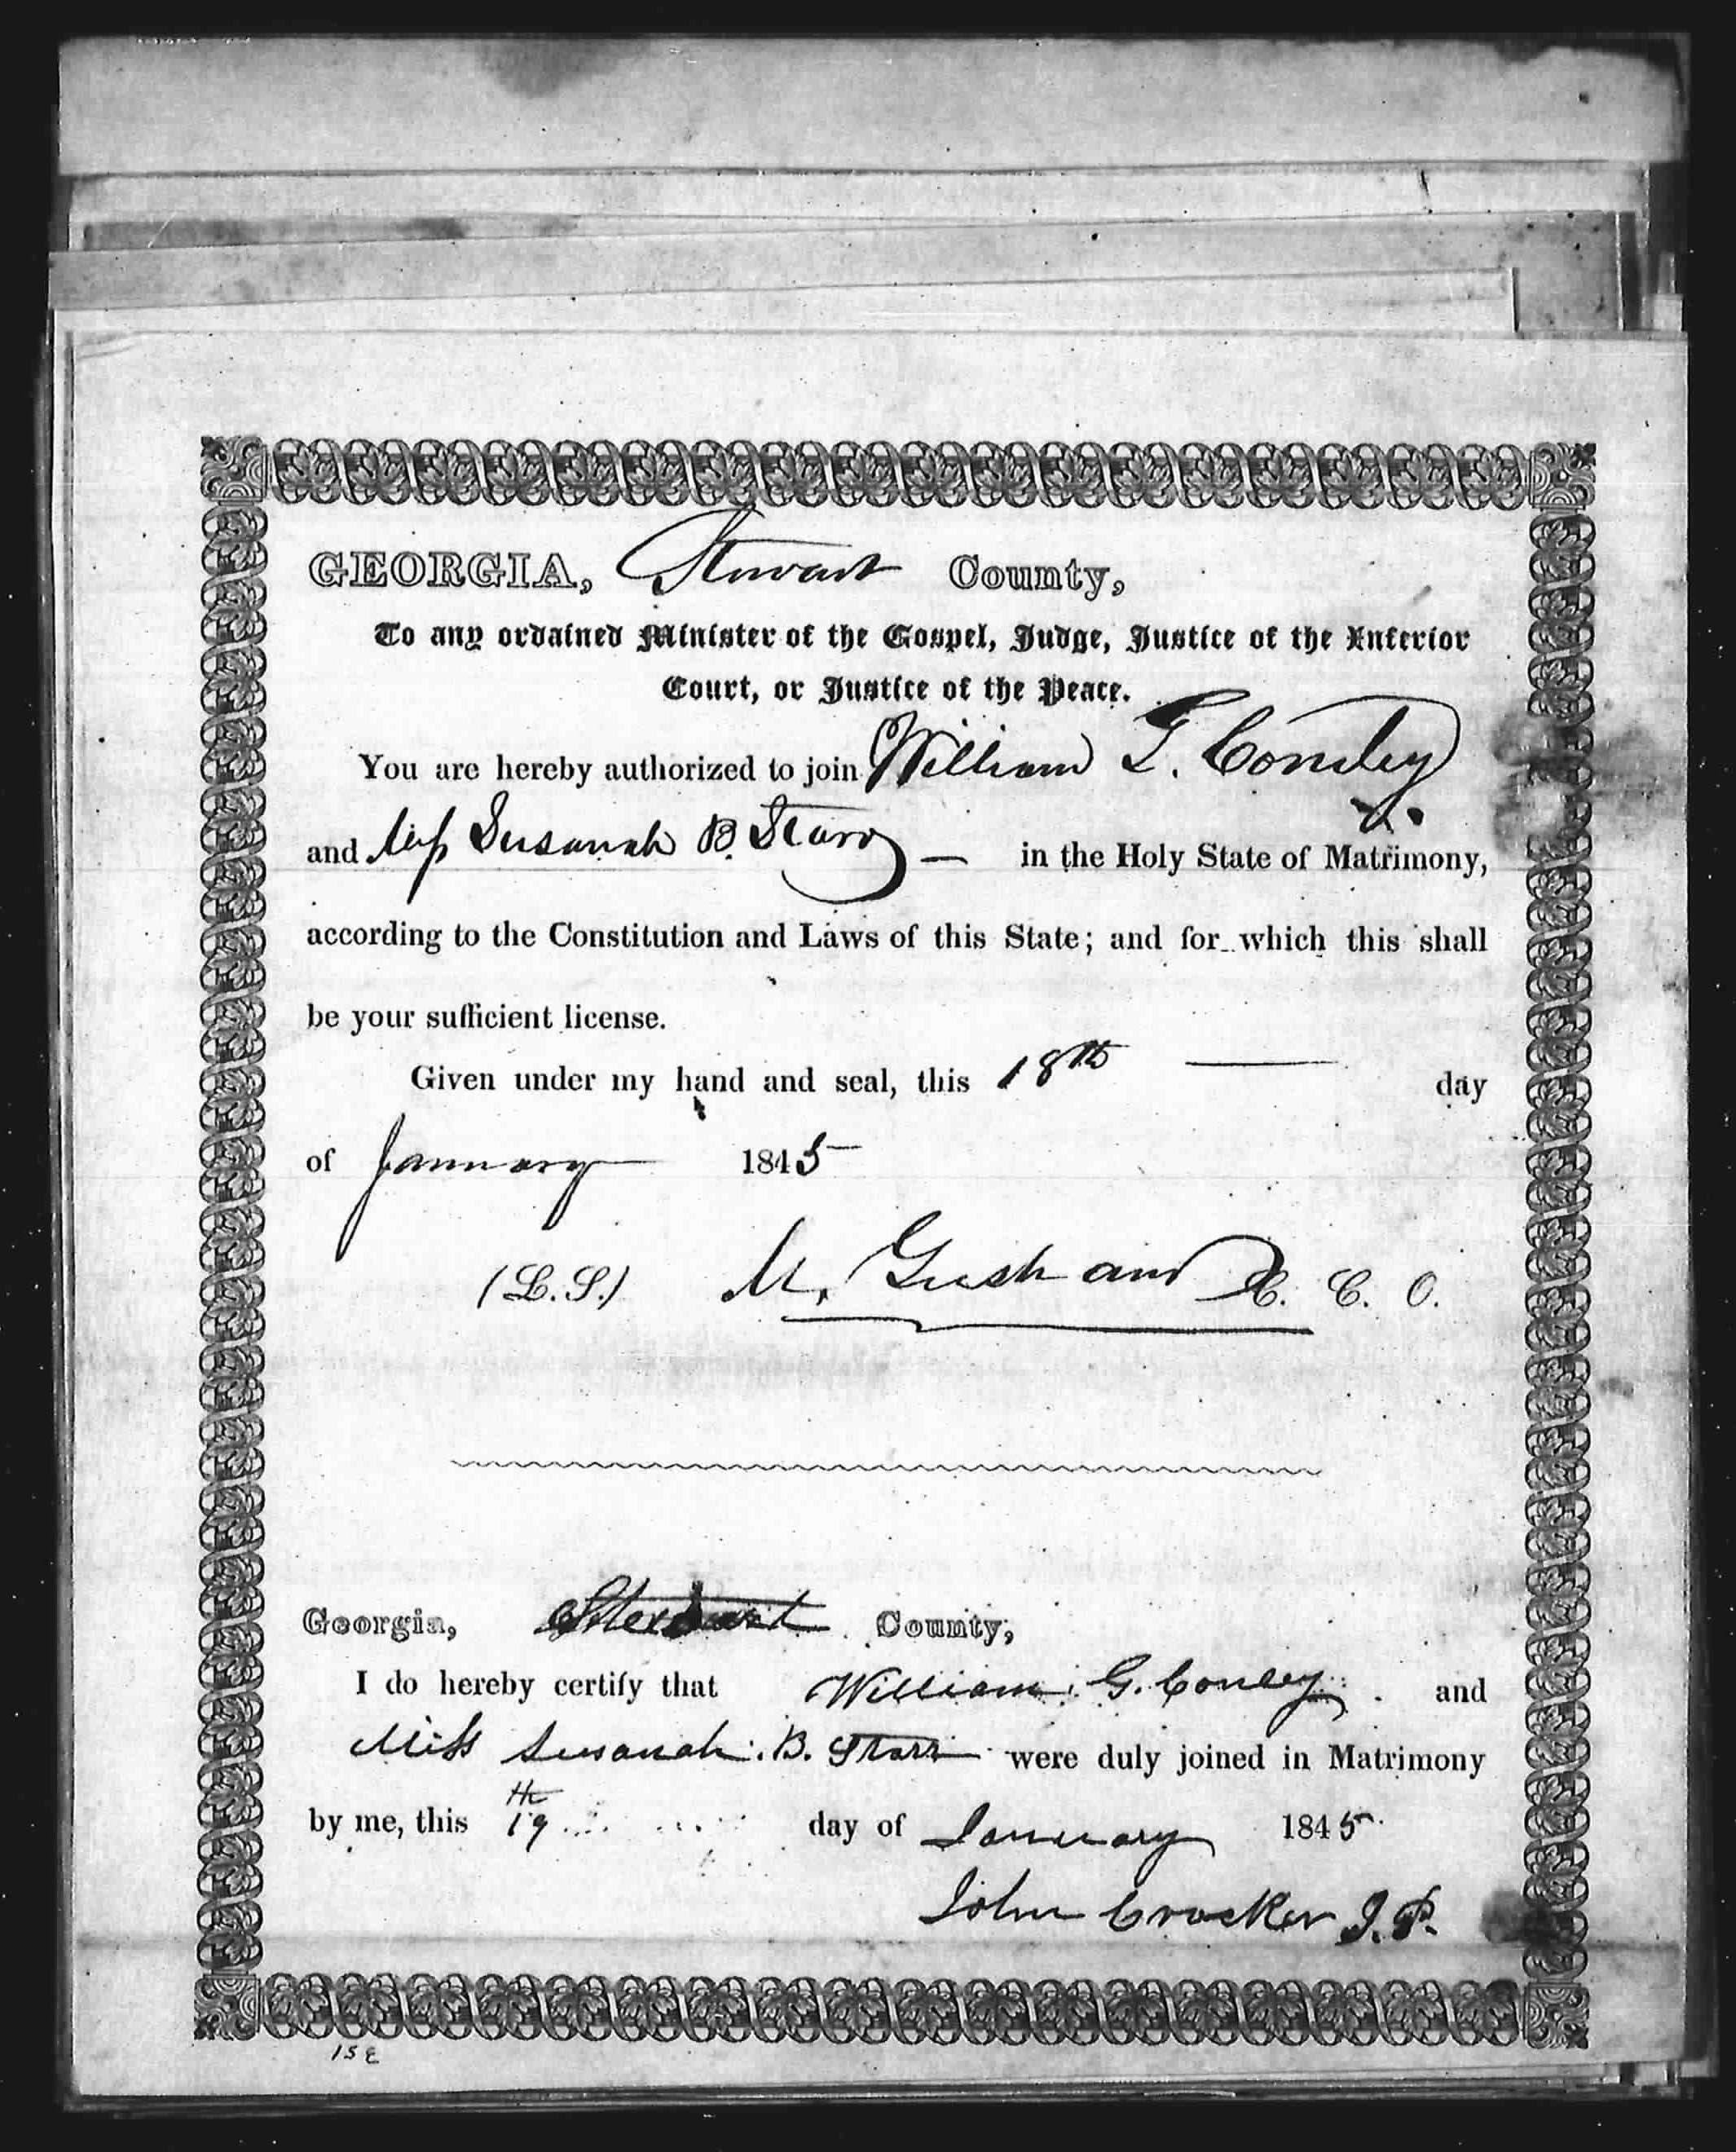 GEORGIA, Stewart County,
To any ordained Minister of the Gospel, Judge, Justice of the Inferior
Court, or Justice of the Peace.
You are hereby authorized to join William G. Conley
and Miss Susanah B. Starr — in the Holy State of Matrimony,
according to the Constitution and Laws of this State; and for which this shall
be your sufficient license.
Given under my hand and seal, this 18th — day
of January 1845
(L.S.) M. Gresham C. C. O.
Georgia, Stewart County,
I do hereby certify that William G. Conley and
Miss Susanah B. Starr were duly joined in Matrimony
by me, this 19th day of January 1845
John Crocker J.P.